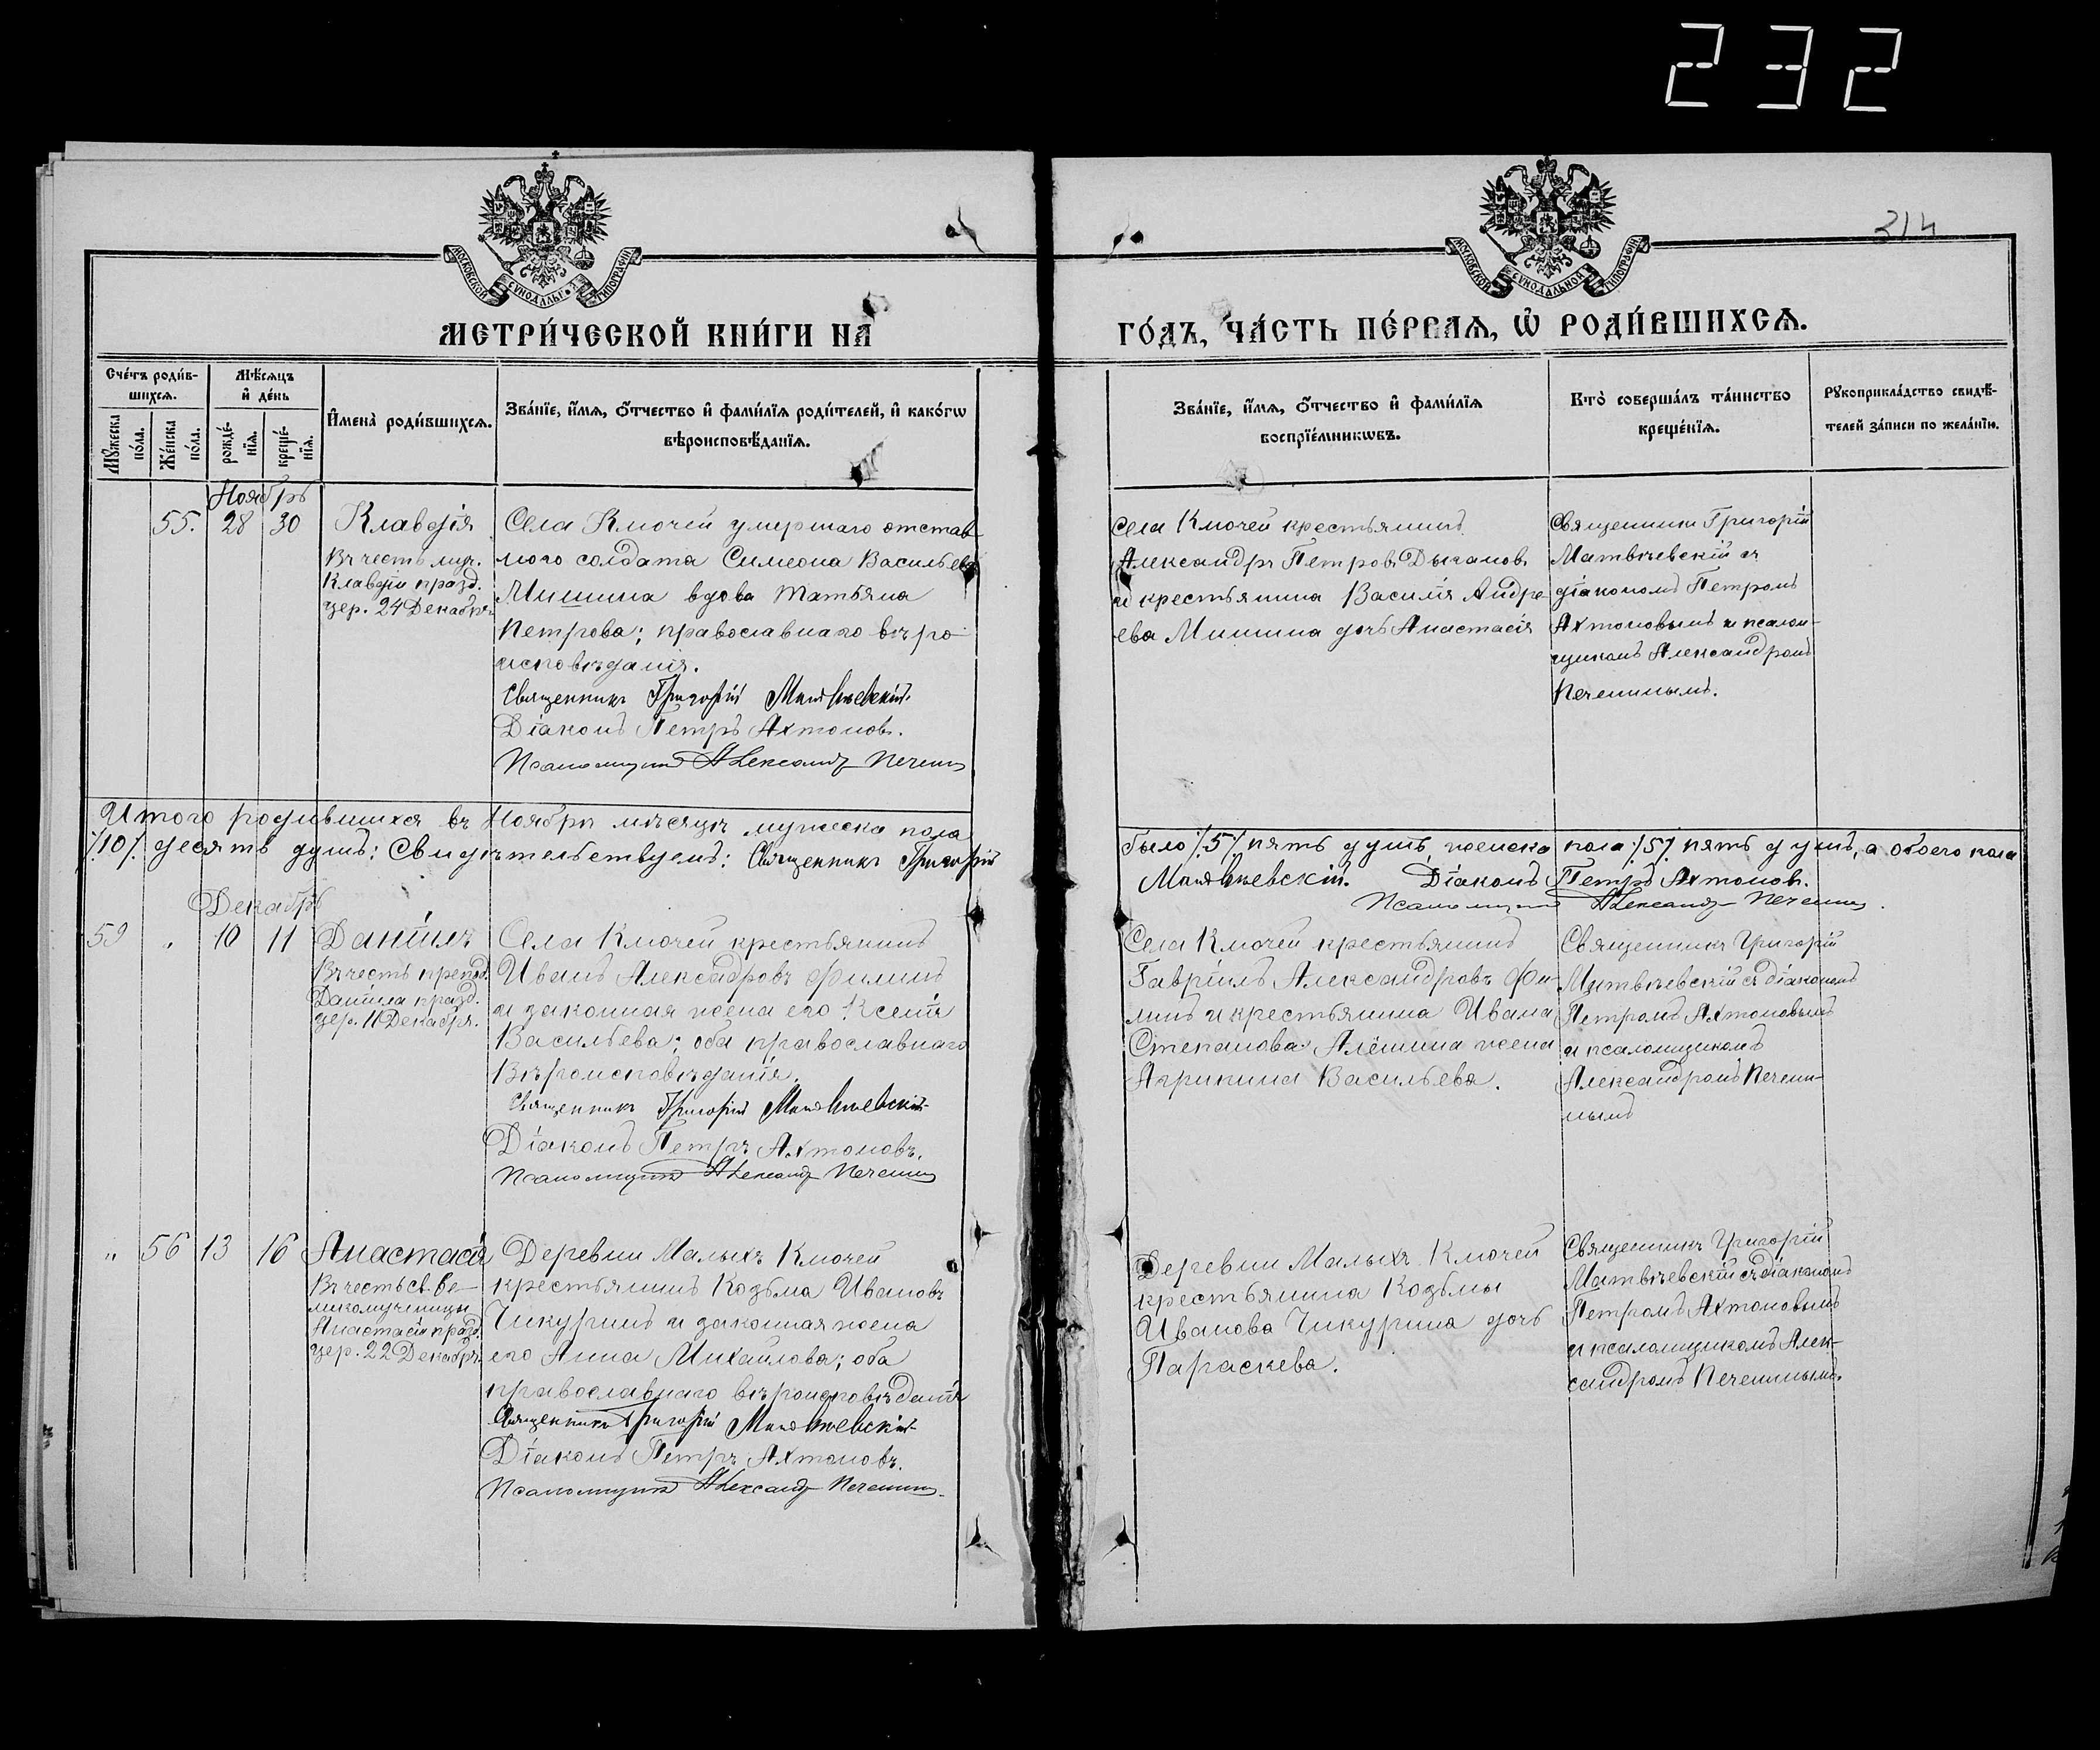 232
314
МОСКОВСКОЙ СѴНОДАЛЬНОЙ ТИПОГРАФІИ
МОСКОВСКОЙ СѴНОДАЛЬНОЙ ТИПОГРАФІИ
МЕТРИ́ЧЕСКОЙ КНИ́ГИ НА
ГО́ДЪ, ЧА́СТЬ ПЕ́РВАѦ, Ѡ҆ РОДИ́ВШИХСѦ.
Сче́тъ роди́в-
шихсѧ.
Мꙋ́жеска по́ла.
Же́нска по́ла.
Мѣ́сѧцъ
и҆ де́нь
рожде́-
нїѧ.
креще́-
нїѧ.
И҆мена̀ роди́вшихсѧ.
Зва́нїе, и҆́мѧ, ѻ҆́тчество и҆ фами́лїѧ роди́телей, и҆ како́гѡ
вѣроисповѣ́данїѧ.
Зва́нїе, и҆́мѧ, ѻ҆́тчество и҆ фами́лїѧ
воспрїе́мникѡвъ.
Кто̀ соверша́лъ та́инство
креще́нїѧ.
Рꙋкоприкла́дство свидѣ́-
телей за́писи по жела́нїю.
Ноябрь
55. 28 30
Клавдія
Въ честь муч.
Клавдіи празд.
цер. 24 Декабря
Села Ключей умершаго отстав
ного солдата Симеона Васильева
Мишина вдова Татьяна
Петрова; православнаго вѣро
исповѣданія.
Священникъ Григорій Матвѣевскій.
Діаконъ Петръ Ахтоновъ.
Псаломщикъ Александръ Печенинъ
Села Ключей крестьянинъ
Александръ Петровъ Дыкановъ
и крестьянина Василія Андре-
ева Мишина дочь Анастасія
Священникъ Григорій
Матвѣевскій съ
діакономъ Петромъ
Ахтоновымъ и псалом-
щикомъ Александромъ
Печенинымъ.
Итого родившихся въ Ноябрѣ мѣсяцѣ мужеска пола
было ./5/. пять душъ, женска пола ./5/. пять душъ, а обоего пола
./10/. десять душъ: Свидѣтельствуемъ: Священникъ Григорій
Матвѣевскій. Діаконъ Петръ Ахтоновъ.
Псаломщикъ Александръ Печенинъ.
Декабрь
59 " 10 11
Даніилъ
Въ честь препод.
Даніила празд.
цер. 11 Декабря.
Села Ключей крестьянинъ
Иванъ Александровъ Филинъ
и законная жена его Ксенія
Васильева; оба православнаго
Вѣроисповѣданія.
Священникъ Григорій Матвѣевскій
Діаконъ Петръ Ахтоновъ.
Псаломщикъ Александръ Печенинъ
Села Ключей крестьянинъ
Гавріилъ Александровъ Фи-
линъ и крестьянина Ивана
Степанова Алёшина жена
Агрипина Васильева.
Священникъ Григорій
Матвѣевскій съ діакономъ
Петромъ Ахтоновымъ
и псаломщикомъ
Александромъ Печени-
нымъ
" 56 13 16
Анастасія
Въ честь св. Ве-
ликомученицы
Анастасіи празд.
цер. 22 Декабря
Деревни Малыхъ Ключей
крестьянинъ Козьма Ивановъ
Чикуринъ и законная жена
его Анна Михайлова; оба
православнаго вѣроисповѣданія
Священникъ Григорій Матвѣевскій
Діаконъ Петръ Ахтоновъ.
Псаломщикъ Александръ Печенинъ.
Деревни Малыхъ Ключей
крестьянина Козьмы
Иванова Чикурина дочь
Параскева.
Священникъ Григорій
Матвѣевскій съ діакономъ
Петромъ Ахтоновымъ
и псаломщикомъ Алек-
сандромъ Печенинымъ.